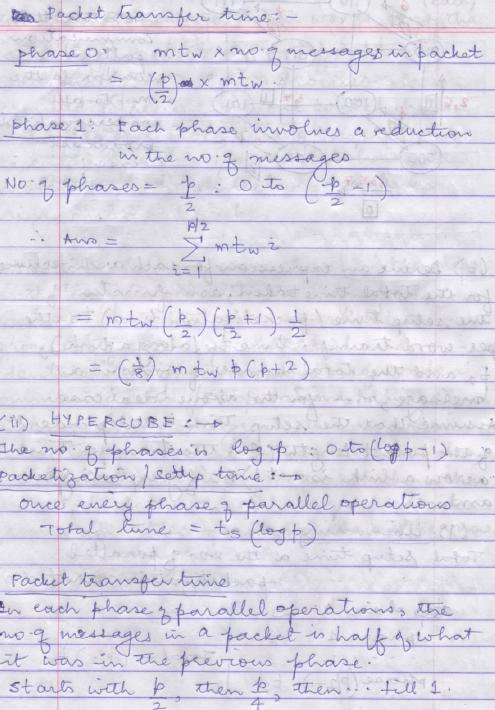 Packet transfer time:-
phase 0: mtw x no. of messages in packet
= (p/2) x mtw.
phase 1: Each phase involves a reduction
in the no. of messages
No. of phases = p/2 : 0 to (p/2 - 1)
∴ Ans = p/2 Σ i=1 mtw i
= mtw (p/2) (p/2 + 1) 1/2
= (1/8) mtw p(p+2)
(ii) HYPERCUBE :→
The no. of phases is log p : 0 to (log p - 1)
Packetization / setup time :→
Once every phase of parallel operations
Total time = ts (log p)
Packet transfer time
In each phase of parallel operations, the
no. of messages in a packet is half of what
it was in the previous phase.
Starts with p/2, then p/4, then ... till 1.